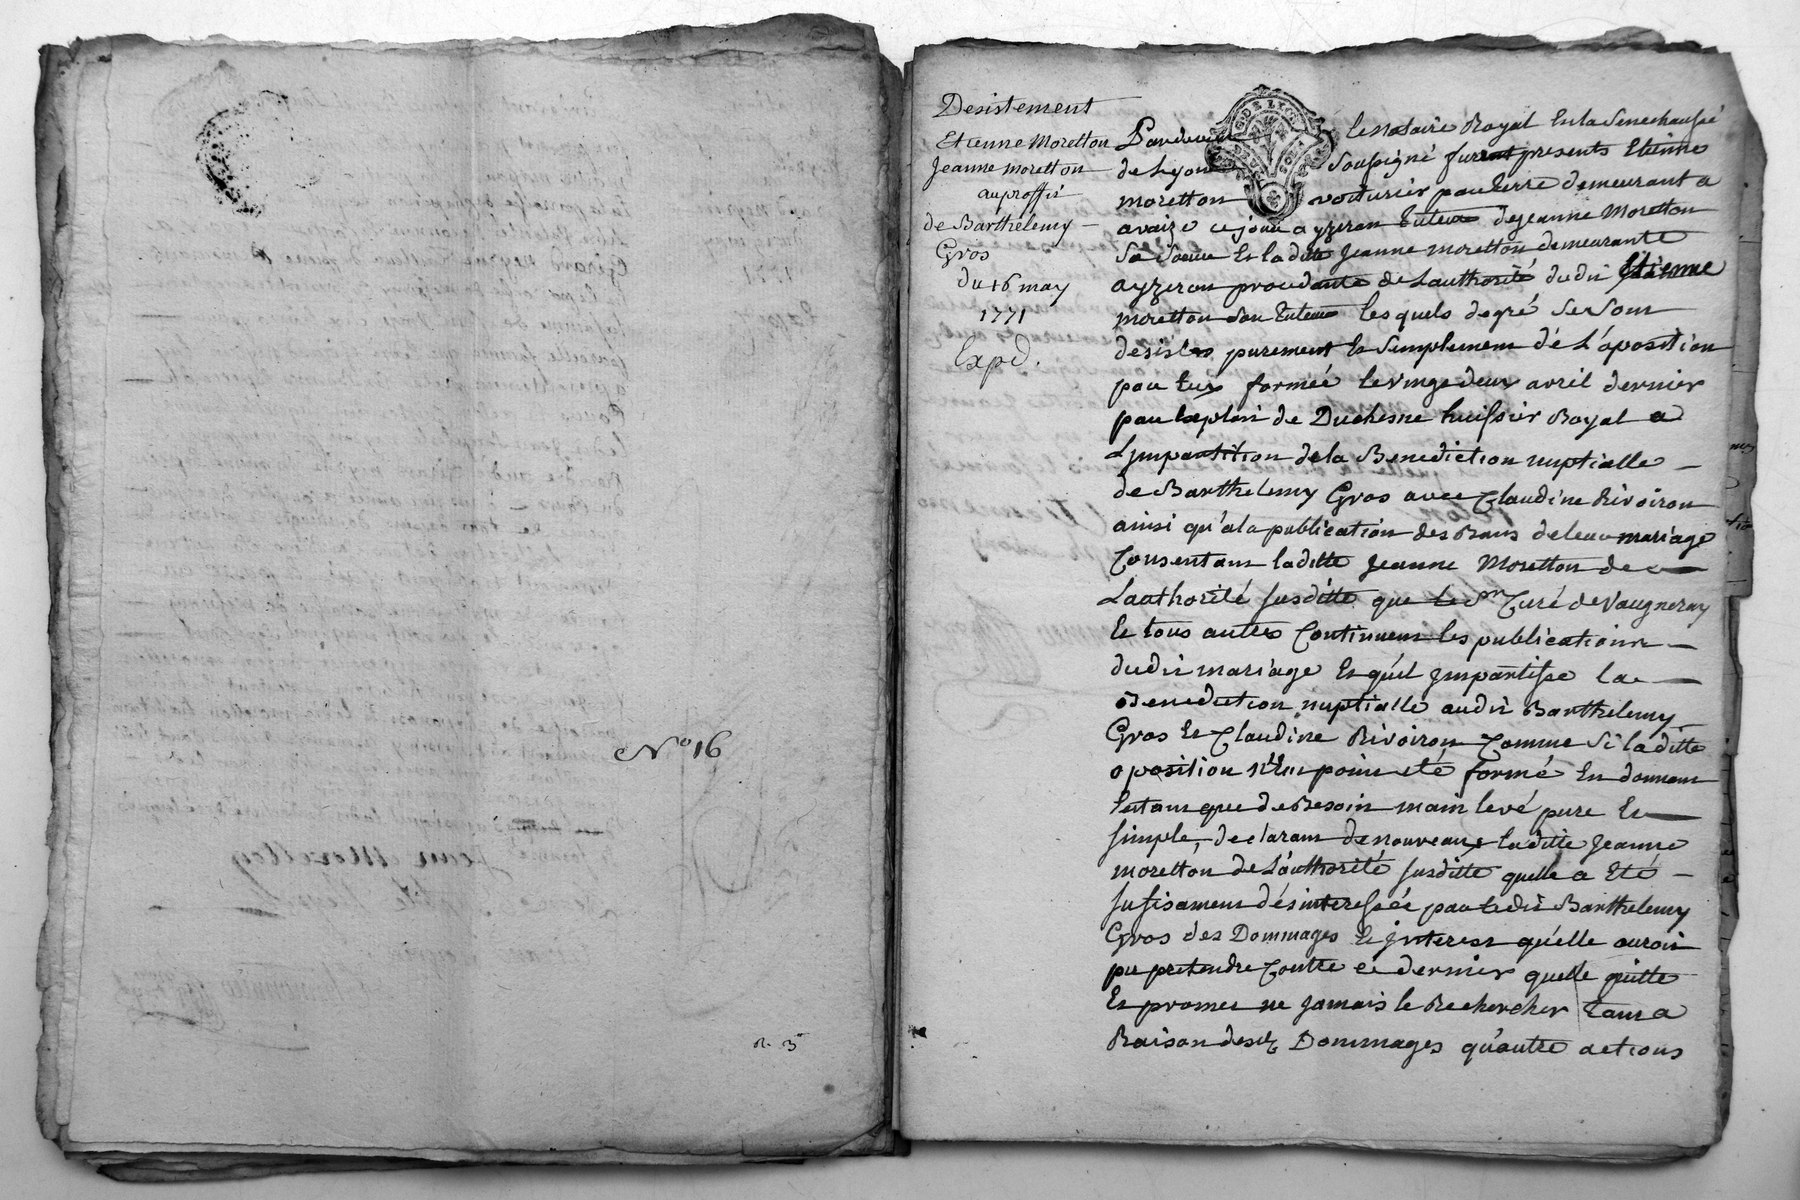 N° 16
R. 3
Desistement
Etienne Moretton
Jeanne moretton
au proffit
de Barthelemy
Gros
du 16 may
1771
Expd.
G. DE LYON
Pardevant le notaire Royal En la Senechaussé
de Lyon Soussigné furent presents Etienne
moretton voiturier par terre demeurant a
avaize ce jour a yzeron Tuteur de jeanne Moretton
Sa Soeur Et laditte Jeanne moretton demeurante
a yzeron procedante de Lauthorité dudit Etienne
moretton Son Tuteur lesquels de gré Se Sont
desistes purement Et Simplement de L'oposition
par Eux formée le vingt deux avril dernier
par Exploit de Duchesne huissier Royal a
Limpartition de la Benediction nuptialle
de Barthelemy Gros avec Claudine Rivoiron
ainsi qu'a la publication des Bans de leur mariage
Consentant laditte Jeanne Moretton de
Lauthorité susditte que le Sr Curé de Vaugneray
Et tous autres Continuent les publications
dudit mariage Et qu'il Jmpartisse la
Benediction nuptialle audit Barthelemy
Gros Et Claudine Rivoiron Comme Si laditte
oposition n'Eut point eté formé En donnant
Entant que de Besoin main levé pure Et
simple, declarant de nouveau laditte Jeanne
moretton de L'authorité susditte quelle a Eté
sufisament désinteressée par ledit Barthelemy
Gros des Dommages Et jnterest qu'elle auroit
pu pretendre Contre ce dernier quelle quitte
Et promet ne jamais le Rechercher tant a
Raison desdts Dommages qu'autre actions